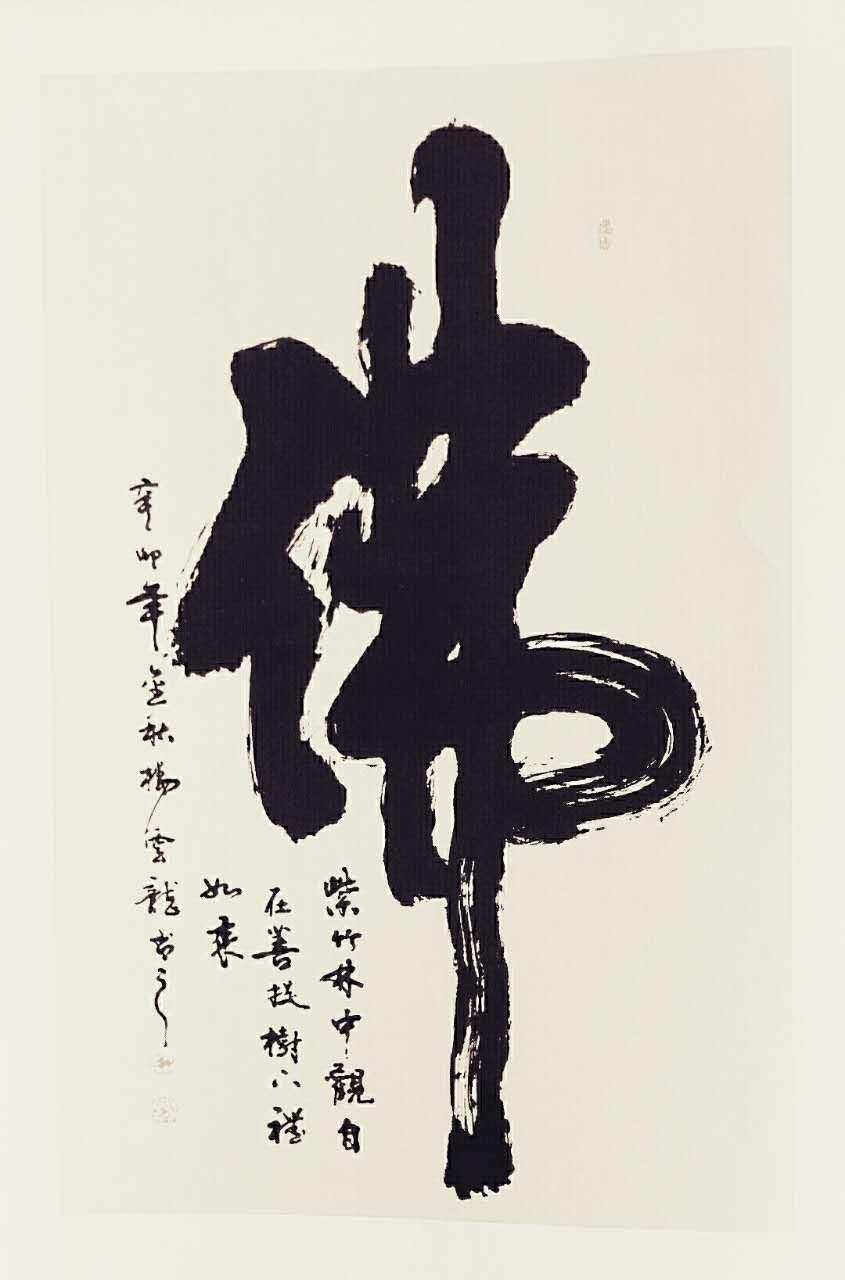 佛
紫竹林中觀自
在善提樹下禮
如來
辛卯年金秋楊雲龍書之